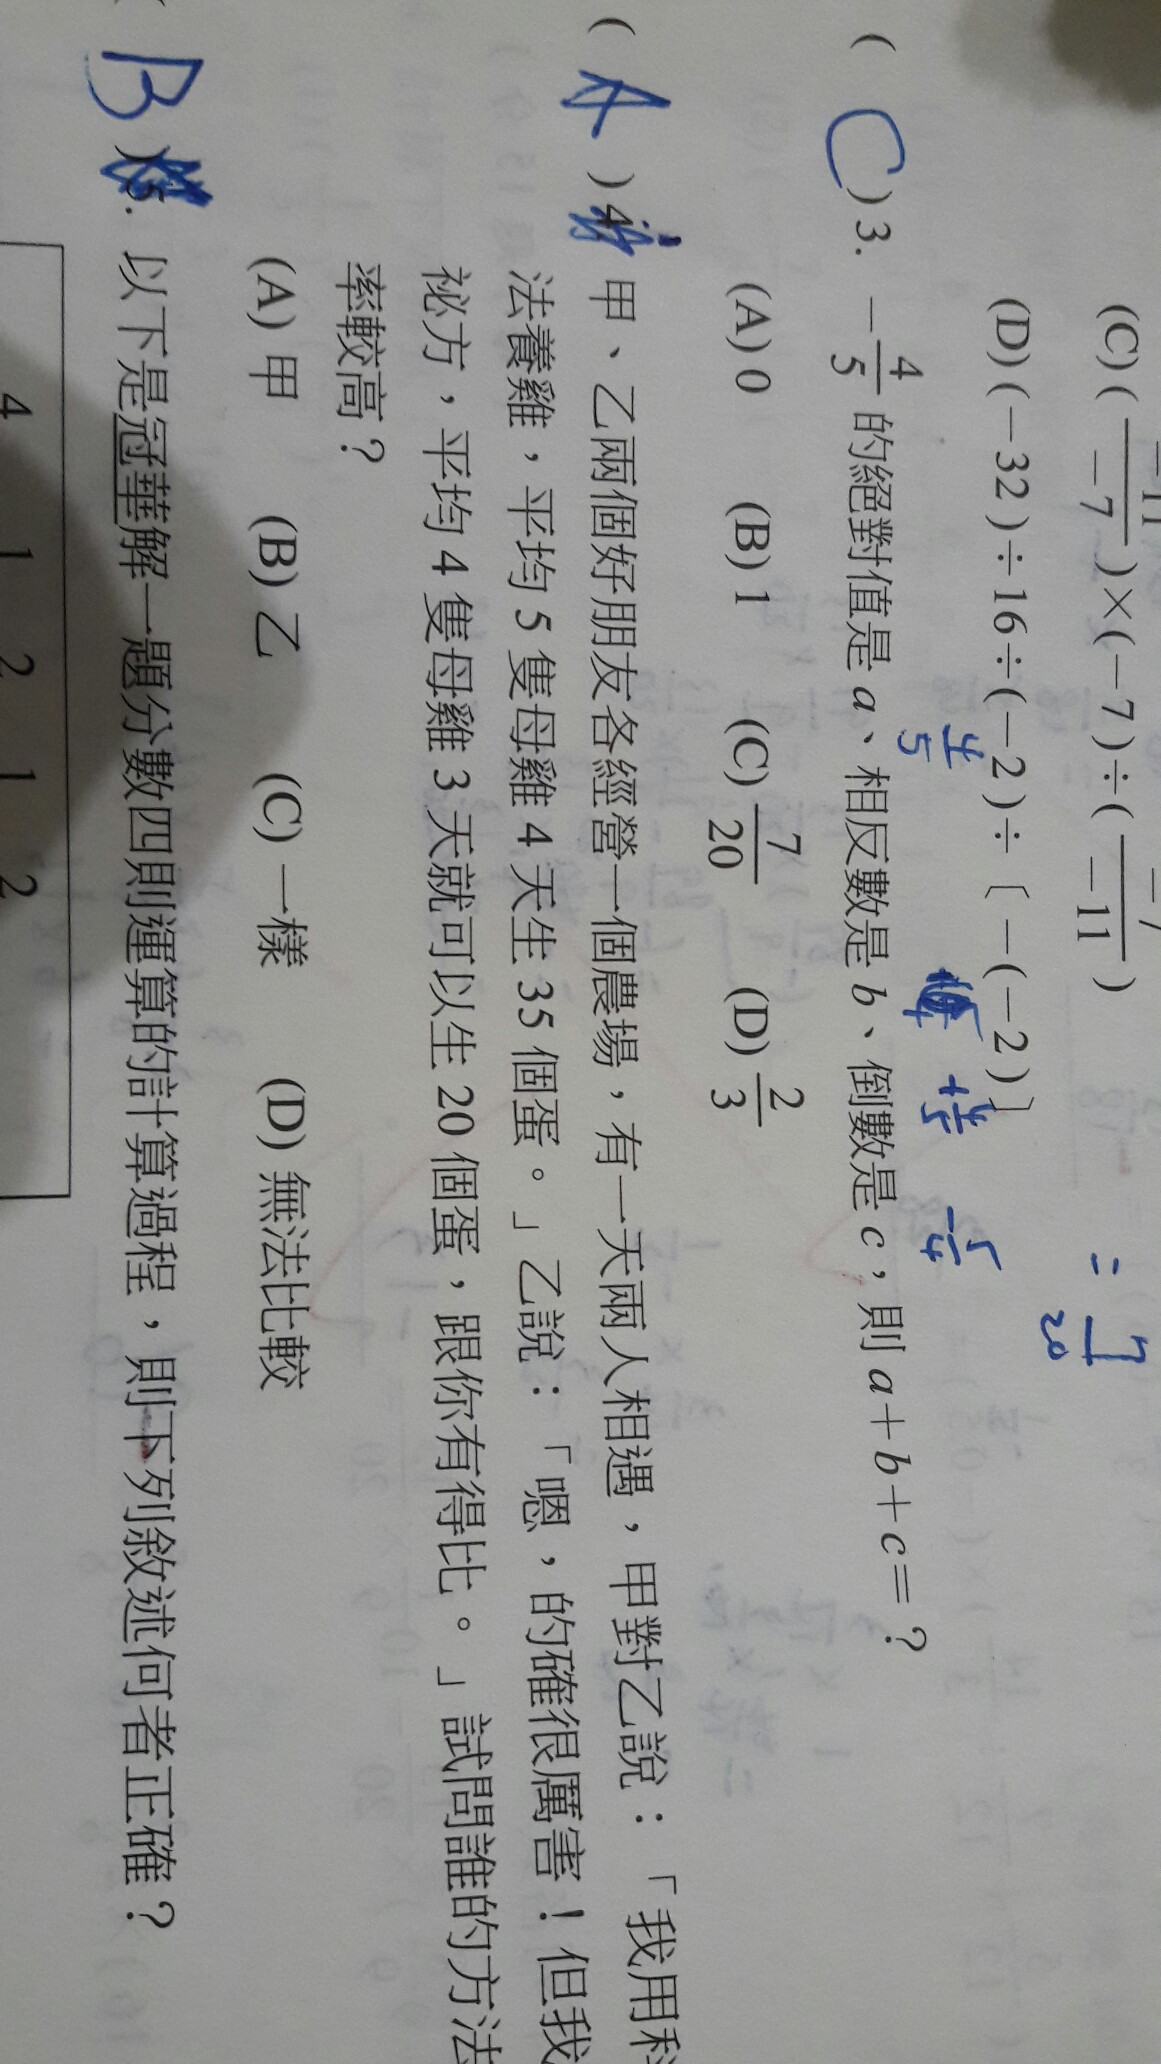 (C) (-11/-7)×(-7)÷(-7/-11)
(D) (-32)÷16÷(-2)÷〔-(-2)〕
= 7/20
4/5 +4/5 -5/4
( C ) 3. -4/5 的絕對值是 a、相反數是 b、倒數是 c，則 a+b+c=？
(A) 0 (B) 1 (C) 7/20 (D) 2/3
( A ) 4. 甲、乙兩個好朋友各經營一個農場，有一天兩人相遇，甲對乙說：「我用科
法養雞，平均 5 隻母雞 4 天生 35 個蛋。」乙說：「嗯，的確很厲害！但我
祕方，平均 4 隻母雞 3 天就可以生 20 個蛋，跟你有得比。」試問誰的方法
率較高？
(A) 甲 (B) 乙 (C) 一樣 (D) 無法比較
( B ) 5. 以下是冠華解一題分數四則運算的計算過程，則下列敘述何者正確？
4 1 2 1 2